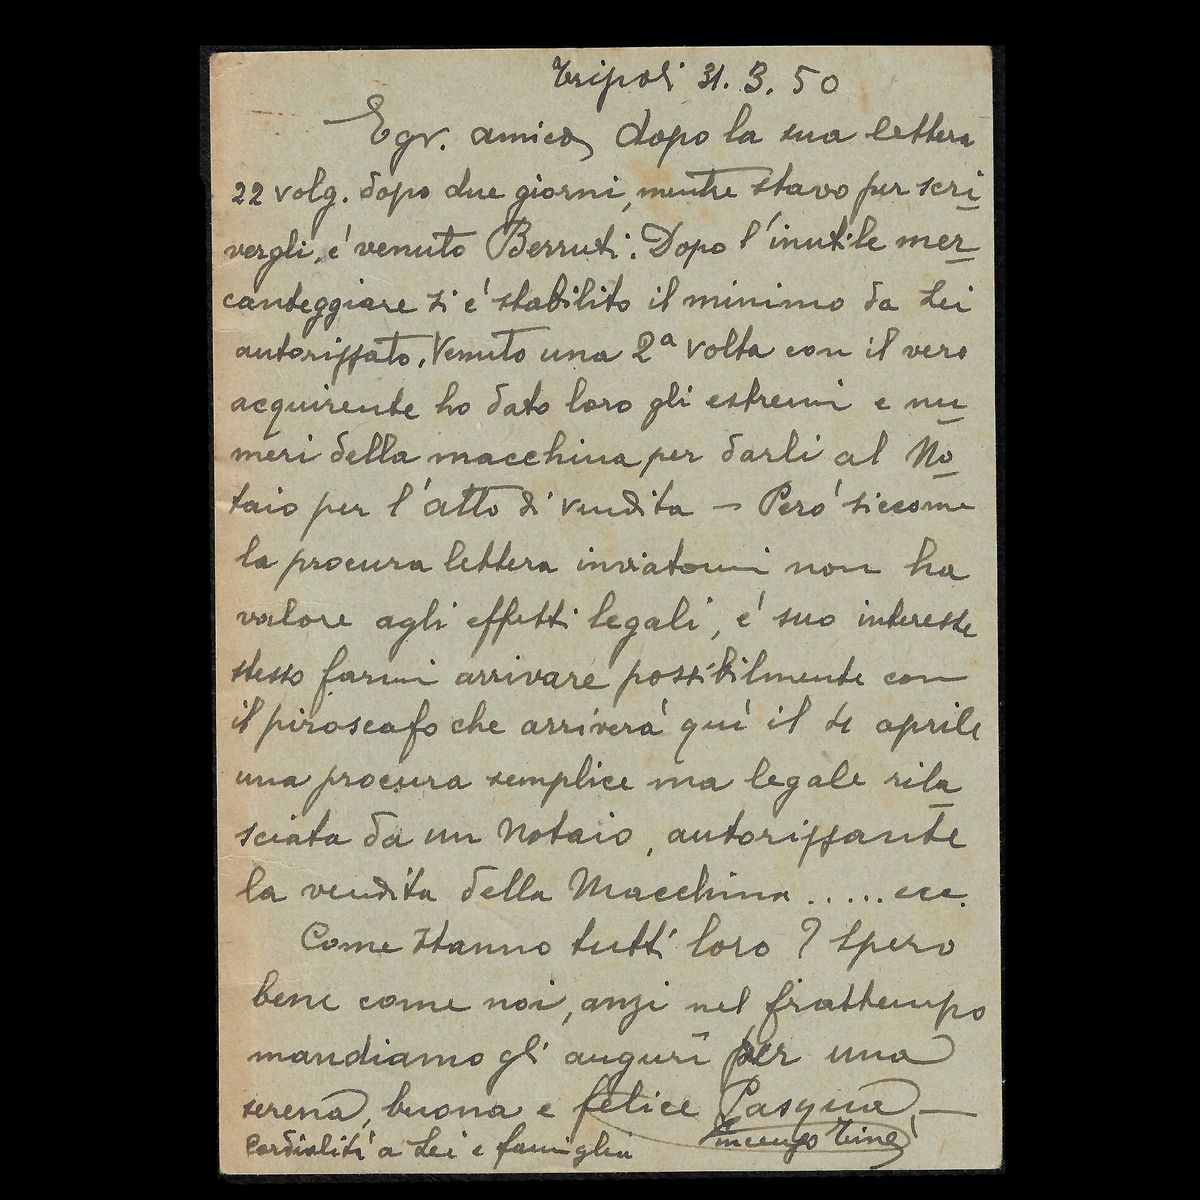 Tripoli 31.3.50
Egr. amico, dopo la sua lettera
22 volg. dopo due giorni, mentre stavo per scri
vergli, e' venuto Berruti. Dopo l'inutile mer
canteggiare si e' stabilito il minimo da Lei
autorizzato. Venuto una 2ª volta con il vero
acquirente ho dato loro gli estremi e nu
meri della macchina per darli al No
taio per l'atto di vendita — Pero' siccome
la procura lettera inviatomi non ha
valore agli effetti legali, e' suo interesse
stesso farmi arrivare possibilmente con
il piroscafo che arrivera' qui il 4 aprile
una procura semplice ma legale rila
sciata da un Notaio, autorizzante
la vendita della Macchina ..... ecc.
Come stanno tutti loro? Spero
bene come noi, anzi nel frattempo
mandiamo gli auguri per una
serena, buona e felice Pasqua. —
Cordialita' a Lei e famiglia Vincenzo